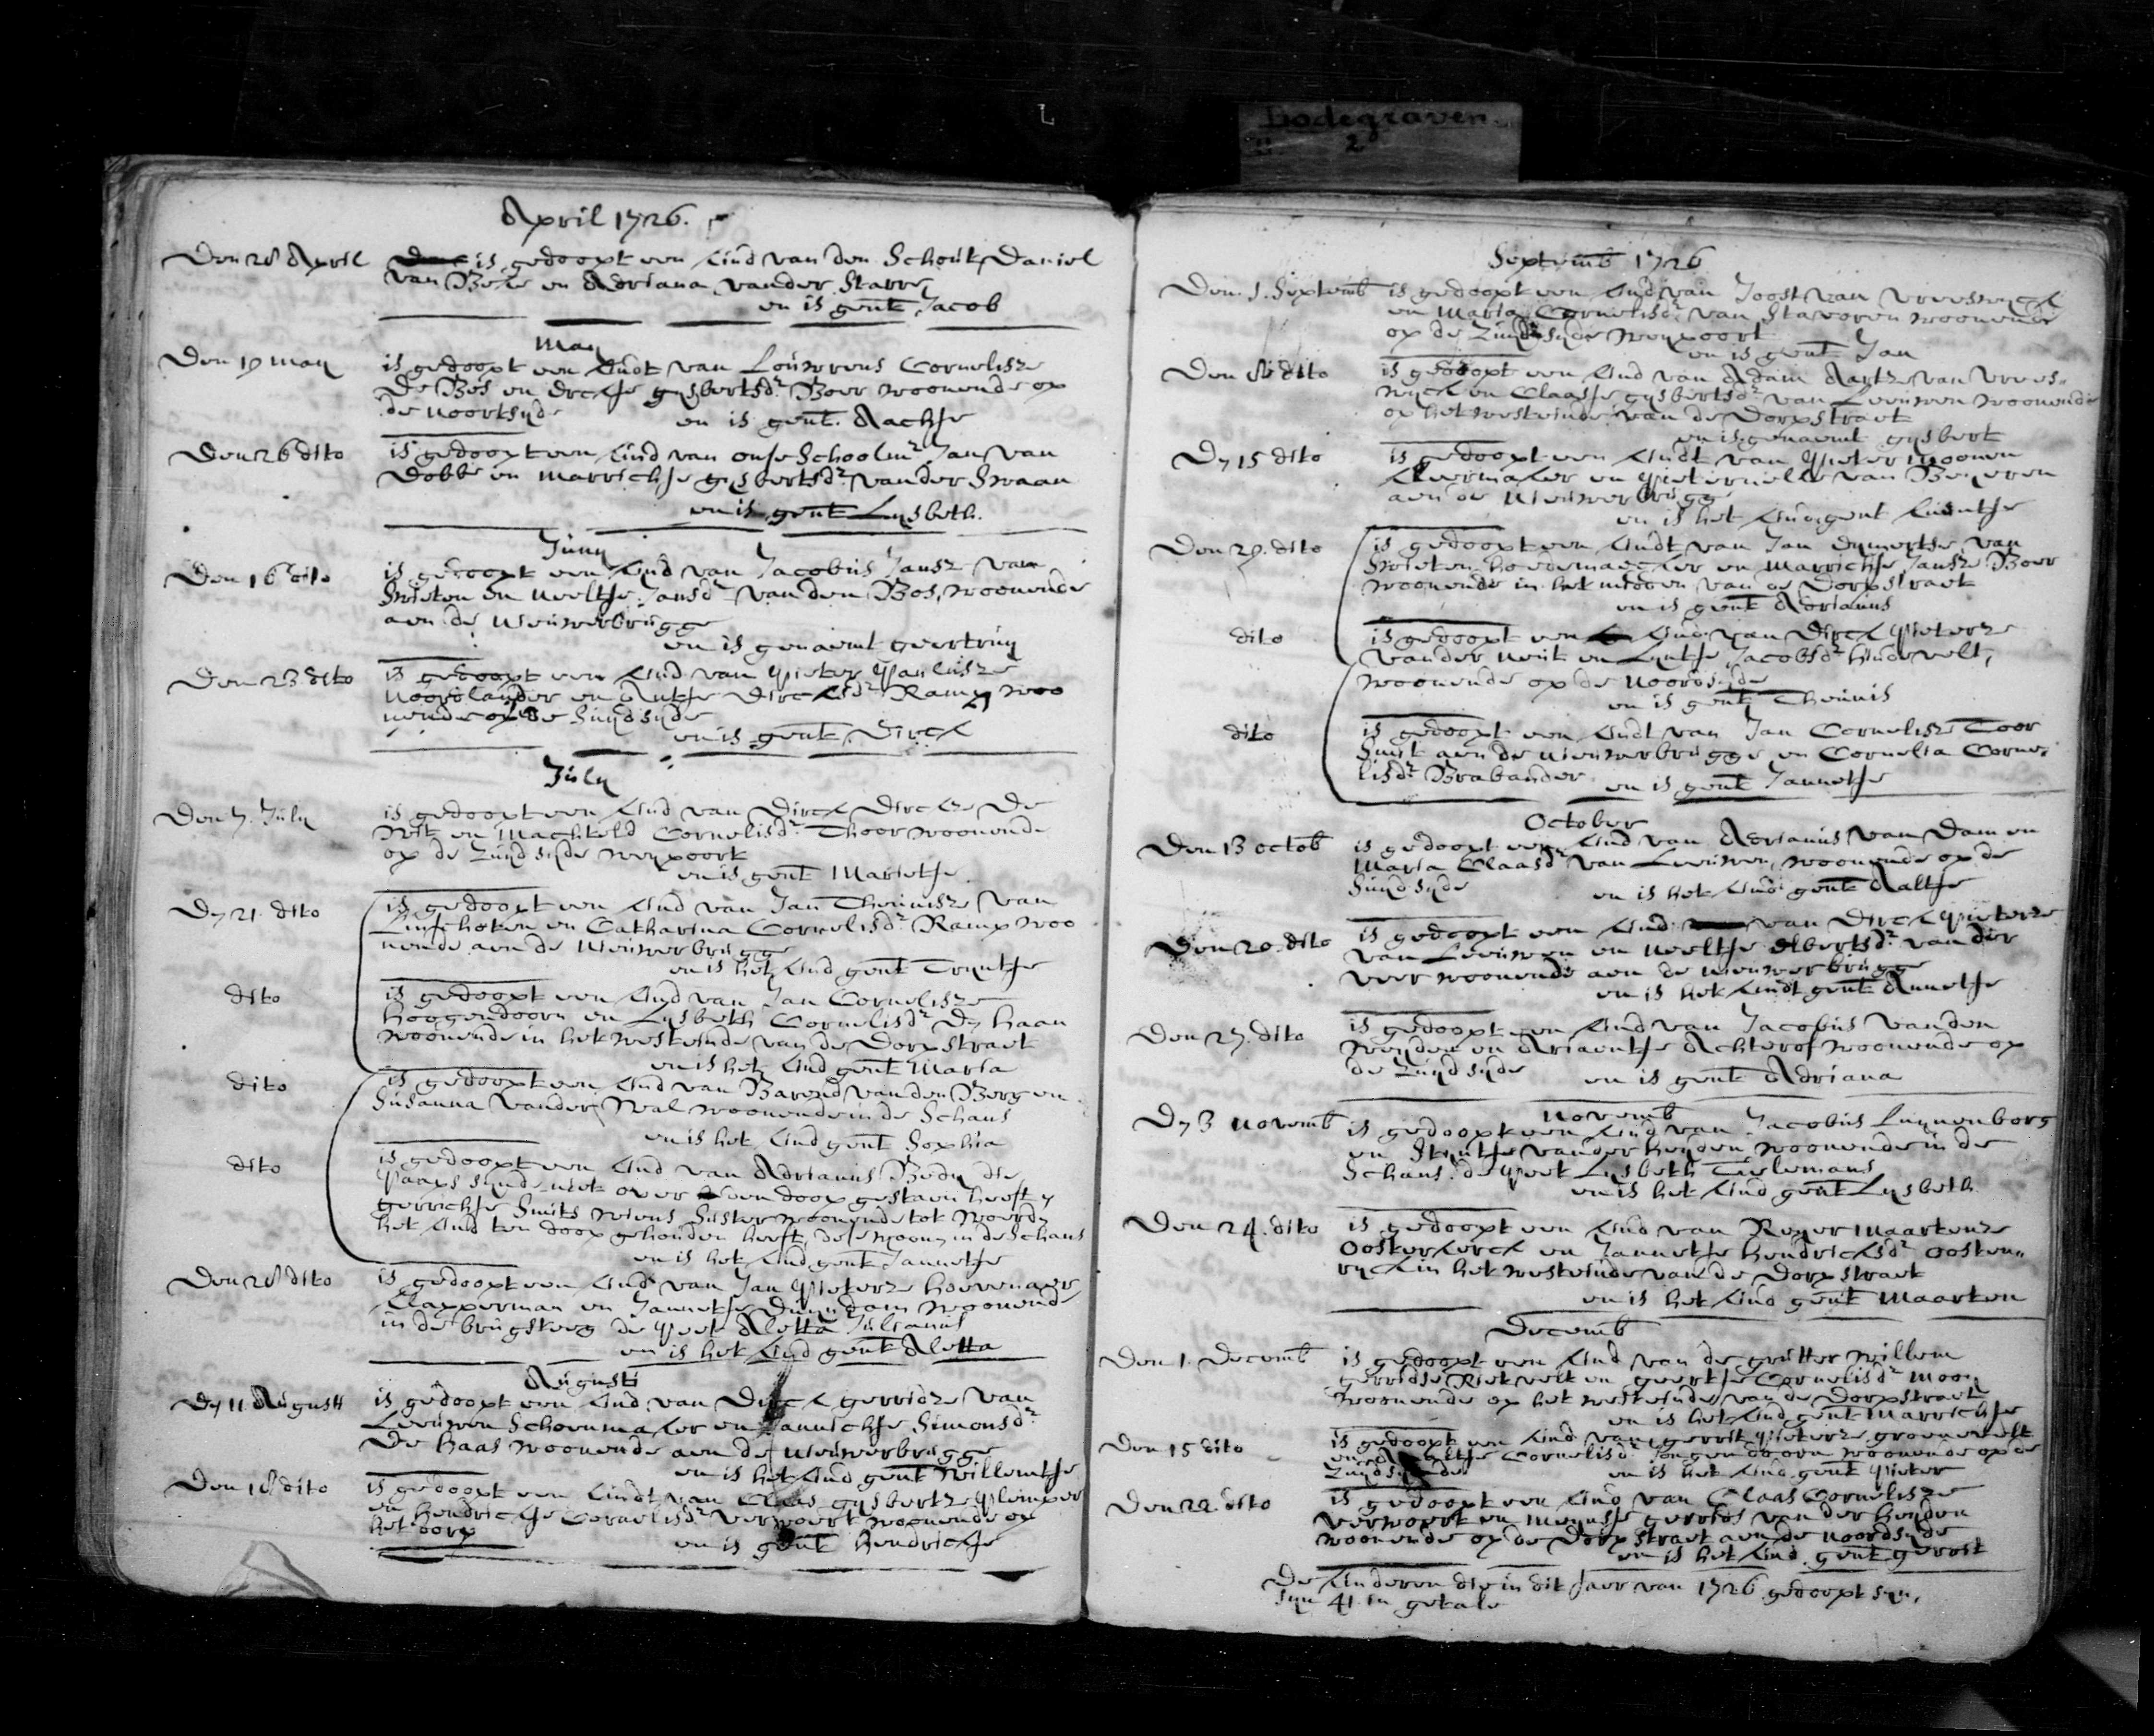 Bodegraven
2
April 1726.
Den 28 April is gedoopt een kind van den Schout Daniel
van Beke en Adriana vander Starre
en is gent Jacob
May
Den 19 may is gedoopt een kindt van Louwrens Cornelisze
De Bos en Erckje gysbertsdr Boer woonende op
de noortsyde en is gent. Aachje
Den 26 dito is gedoopt een kind van onse Schoolmr Jan van
Dobbe en Marrichje gysbertsdr vander Swaan
en is gent Lysbeth.
Juny
Den 16 dito is gedoopt een kind van Jacobus Jansz van
Swieten en Neeltje Jansdr van den Bos, woonende
aen de Nieuwerbrugge
en is genaemt geertruy
Den 23 dito is gedoopt een kind van Pieter Paulusze
Noordlander en Antje Dircksdr Ramp woo
nende op de Suydsyde
en is gent Dirck
July
Den 7. July is gedoopt een kind van Dirck Dirckze De
Wit en Machteld Cornelisdr Thoor woonende
op de Zuydsyde weypoort
en is gent Marietje
Dn 21. dito is gedoopt een kind van Jan Theunisze van
Linschoten en Catharina Cornelisdr Ramp woo
nende aen de Nieuwerbrugge
en is het kind gent Tryntje
dito is gedoopt een kind van Jan Cornelisze
Hoogendoorn en Lysbeth Cornelisdr De Haan
woonende in het westeinde van de Dorpstraet
en is het kind gent Maria
dito is gedoopt een kind van Barend van den Berg en
Susanna vander Wal woonende in de Schans
en is het kind gent Sophia
dito is gedoopt een kind van Adrianus Bedy die
Paaps synde niet over den doop gestaen heeft
gerrichje Smits wiens Suster woonende tot Woerdn
het kind ten doop gehouden heeft, dese woonn in de Schans
en is het kind gent Jannetje
Den 28 dito is gedoopt een kind van Jan Pieterze Hoevenaer
Clapperman en Jannetje Duyndam woonende
in de brugsteeg de Peet Aletta Julianus
en is het kind gent Aletta
Augusti
Dn 11 Augusti is gedoopt een kind van Dirck gerridze van
Leeuwen Schoenmaker en Jannichje Simonsdr
De Haas woonende aen de Nieuwerbrugge
en is het kind gent Willemtje
Den 18 dito is gedoopt een kindt van Claas gysbertze Plemper
en Hendrickje Cornelisdr Verwoert woonende op
het dorp en is gent Hendrickje
Septemb 1726
Den. 1. Septemb is gedoopt een kind van Joost van Vreeswyck
en Maria Cornelisdr van Staveren woonende
op de Zuydsyde Weypoort
en is gent Jan
Den 8 dito is gedoopt een kind van Adam Aartze van Vrees-
wyck en Claasje gysbertsdr van Leeuwen woonende
op het westeinde van de Dorpstraet
en is genaemt gysbert
Dn 15 dito is gedoopt een kindt van Pieter Moonen
kleermaker en Pieternelle van Beyeren
aen de Nieuwerbrugge
en is het kind gent Lientje
Den 29. dito is gedoopt een kindt van Jan Eymertse van
Swieten hoedemaecker en Marrichje Jansze Boer
woonende in het midden van de Dorpstraet
en is gent Adrianus
dito is gedoopt een kind van Dirck Pieterze
vander Neut en Lyntje Jacobsdr Hindevelt,
woonende op de Noordsyde
en is gent Theunis
dito is gedoopt een kindt van Jan Cornelisze Toor
Smit aen de Nieuwerbrugge en Cornelia Corne-
lisdr Brabander en is gent Jannetje
October
Den 13 octob is gedoopt een kind van Adrianus van Dam en
Maria Claasdr van Leeuwen, woonende op de
Suydsyde en is het kind gent Aaltje
Den 20. dito is gedoopt een kind van Dirck Pieterze
van Leeuwen en Neeltje Elbertsdr van der
Veer woonende aen de Nieuwerbrugge
en is het kindt gent Annetje
Den 27. dito is gedoopt een kind van Jacobus vanden
Weyden en Ariaentje Achterof woonende op
de Zuydsyde en is gent Adriana
Novemb
Dn 3 Novemb is gedoopt een kind van Jacobus Luynenborg
en Styntje vander Heyden woonende in de
Schans. de Peet Lysbeth Tielemans
en is het kind gent Lysbeth
Den 24. dito is gedoopt een kind van Reyer Maartenze
Oosterkerck en Jannetje Hendricksdr Oosten-
ryck in het westeinde van de Dorpstraet
en is het kind gent Maarten
Decemb
Den 1. Decemb is gedoopt een kind van de grutter Willem
Gerridse Rietvelt en geertje Cornelisdr Mooy
woonende op het westeinde van de Dorpstraet
en is het kind gent Marrichje
Den 15 dito is gedoopt een kind van gerrit Pieterze groenevelt
en Aaltje Cornelisdr Jongendoorn woonende op de
Zuydsyde en is het kind gent Pieter
Den 22. dito is gedoopt een kind van Claas Cornelisze
Verwoert en Meynsje gerrids van der Heyden
woonende op de Dorpstraet aen de noordsyde
en is het kind gent gerrit
De kinderen die in dit Jaer van 1726 gedoopt syn,
syn 41 in getale